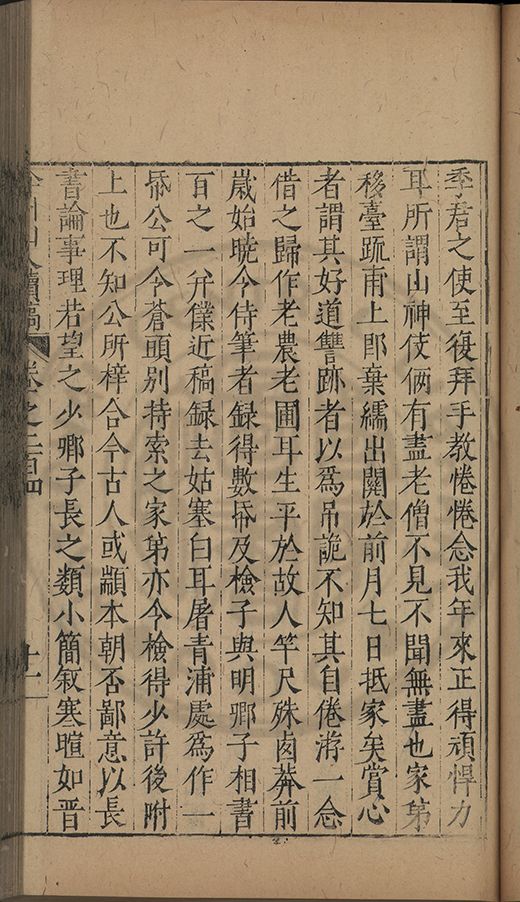 季君之使至復拜手教惓惓念我年來正得頑悍力
耳所謂山神伎倆有盡老僧不見不聞無盡也家弟
移臺䟽甫上即棄繻出關於前月七日抵家矣賞心
者謂其好道讐跡者以爲吊詭不知其自倦游一念
借之歸作老農老圃耳生平於故人竿尺殊鹵莽前
嵗始曉令侍筆者録得數帋及檢子與明卿子相書
百之一并僕近稿録去姑塞白耳屠青浦處爲作一
帋公可令蒼頭别持索之家弟亦令檢得少許後附
上也不知公所梓合今古人或顓本朝否鄙意以長
書論事理若望之少卿子長之類小簡叙寒暄如晋
續稿 卷之 十二